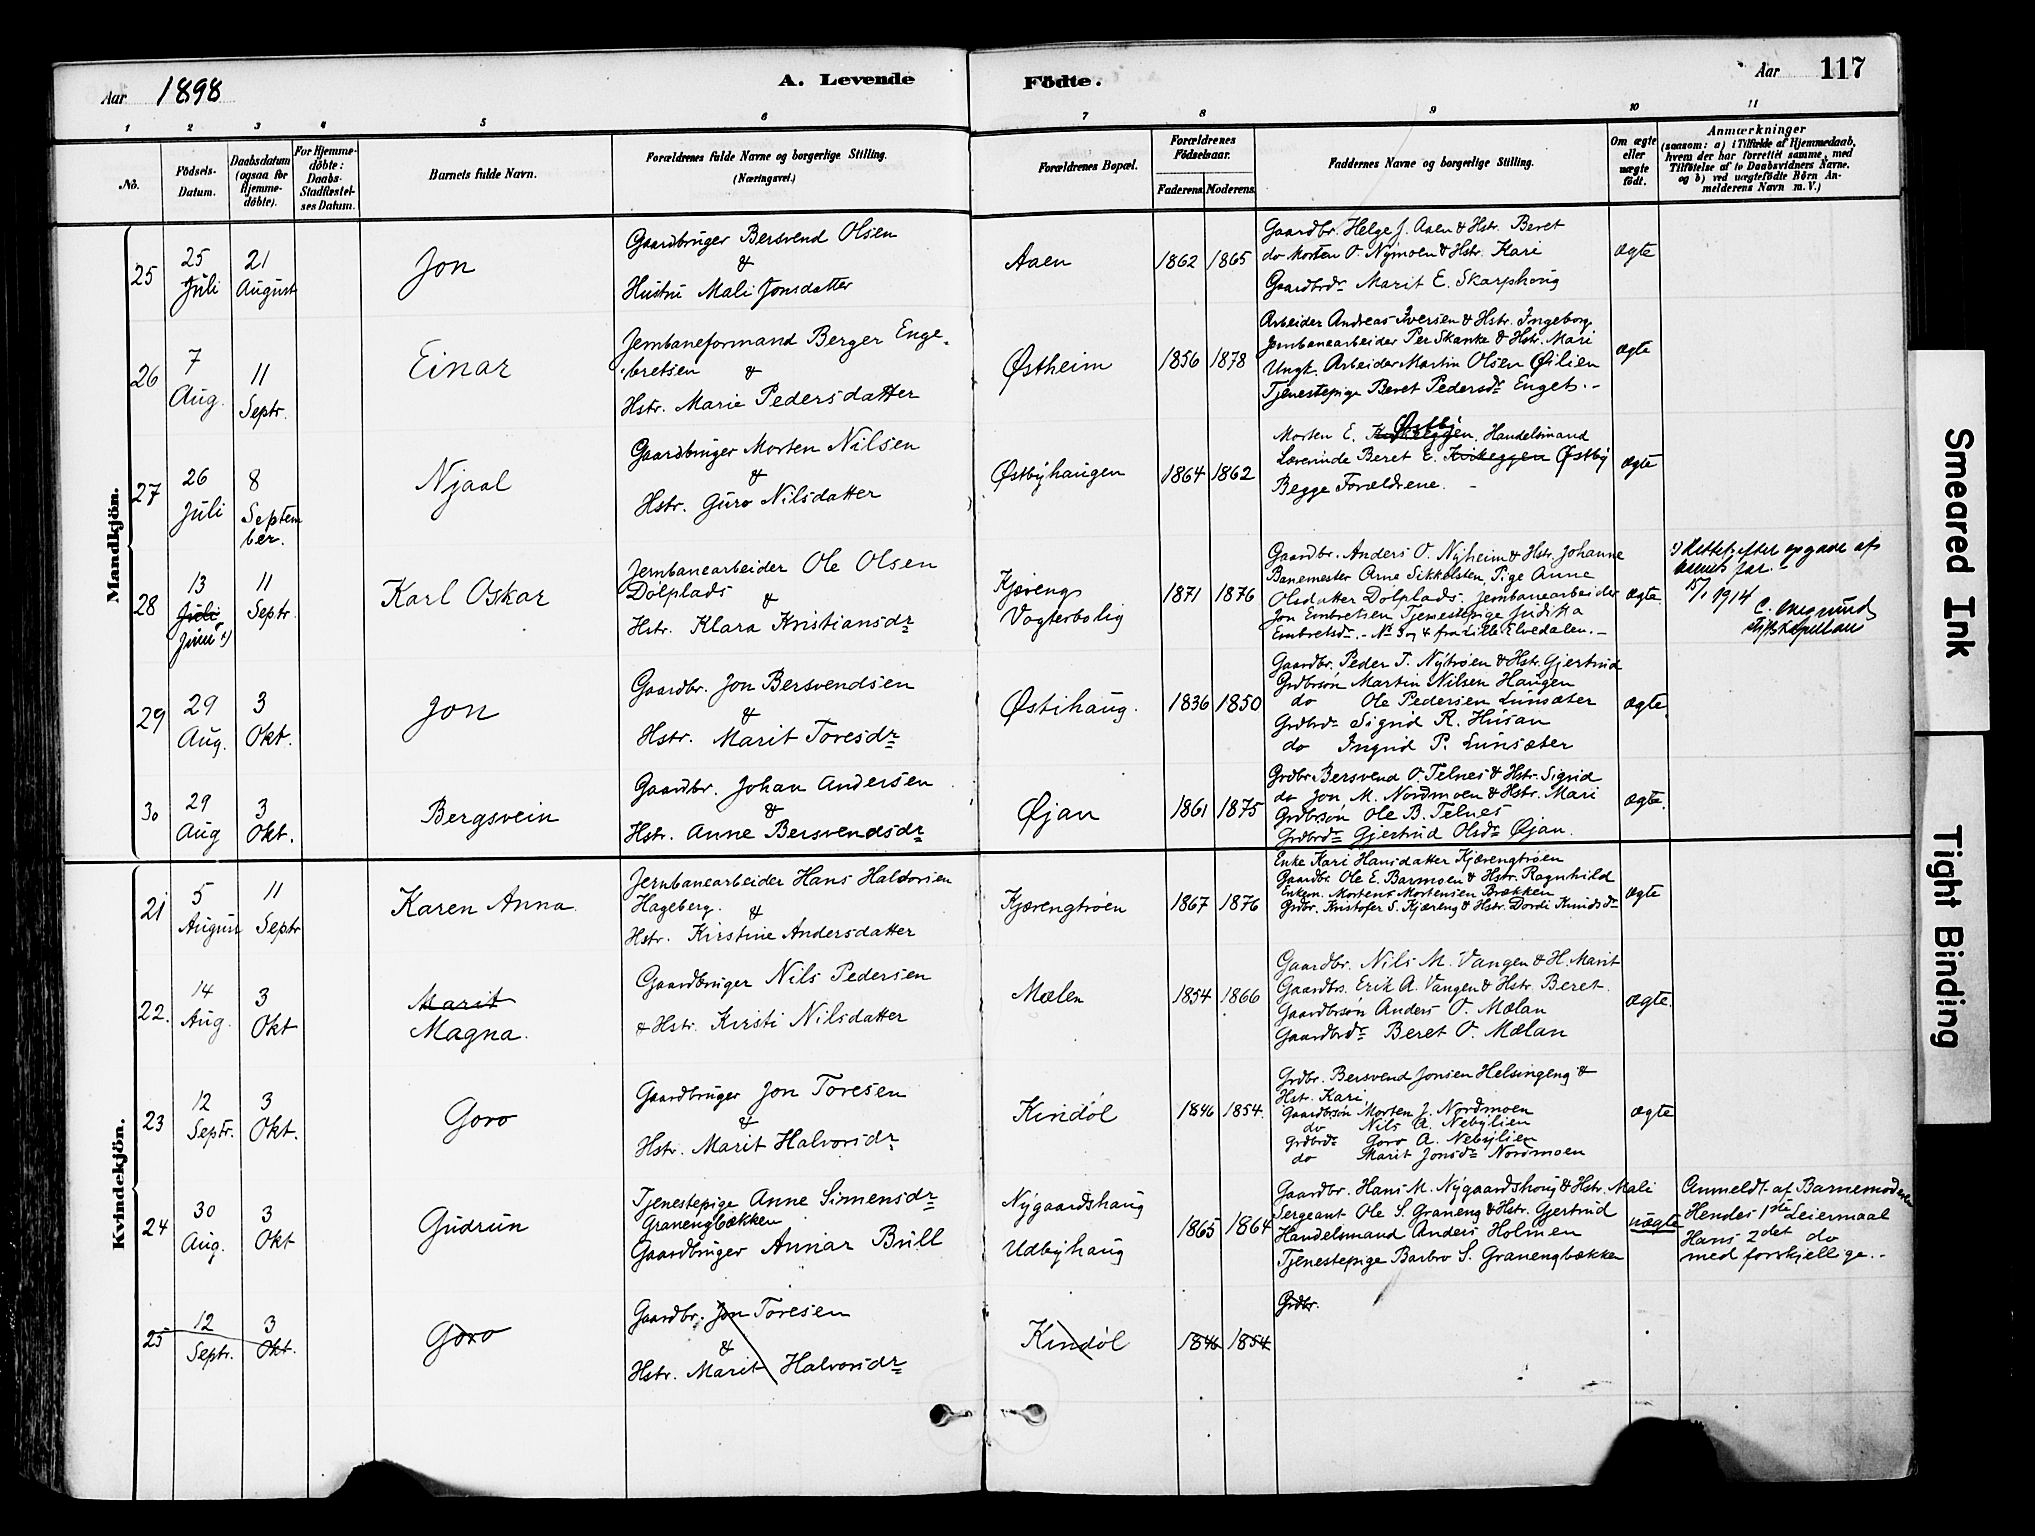 Aar 1898
A. Levende
Födte.
Aar 117
1 2 3 4 5 6 7 8 9 10 11
No.
Födsels-
Datum.
Daabsdatum
(ogsaa for
Hjemme-
döbte).
For Hjemme-
döbte:
Daabs-
Stadfæstel-
ses Datum.
Barnets fulde Navn.
Forældrenes fulde Navne og borgerlige Stilling.
(Næringsvei.)
Forældrenes Bopæl.
Forældrenes
Födselsaar.
Faderens. Moderens.
Faddernes Navne og borgerlige Stilling.
Om ægte
eller
uægte
födt.
Anmærkninger
(saasom: a) i Tilfælde af Hjemmedaab,
hvem der har forrettet samme, med
Tilföielse af to Daabsvidners Navne.
og b) ved uægtefödte Börn An-
melderens Navn m. V.)
Mandkjön.
25
25
Juli
21
August
Jon
Gaardbruger Bersvend Olsen
&
Hustru Mali Jonsdatter
Aaen
1862 1865
Gaardbr. Helge J. Aaen & Hstr. Beret
do Morten O. Nymoen & Hstr. Kari
Gaardbrdr. Marit E. Skarphoug
ægte
26
7
Aug.
11
Septr.
Einar
Jernbaneformand Berger Enge-
bretsen &
Hstr. Marie Pedersdatter
Østheim
1856 1878
Arbeider Andreas Iversen & Hstr. Ingeborg
Jernbanearbeider Per Skanke & Hstr. Mari
Ungk. Arbeider Martin Olsen Øilien
Tjenestepige Beret Pedersdr. Enget. -
ægte
27
26
Juli
8
Septem
ber.
Njaal
Gaardbruger Morten Nilsen
&
Hstr. Guro Nilsdatter
Østbyhaugen
1864 1862
Østby
Morten E. Handelsmand
Lærerinde Beret E. Kvikeggen Østby
Begge Forældrene. -
ægte
28
13
Juli
Juni 1)
11
Septr.
Karl Oskar
Jernbanearbeider Ole Olsen
Dølplads &
Hstr. Klara Kristiansdr
Kjærengs
Vogterbolig
1871 1876
Gaardbr. Anders O. Nyheim & Hstr. Johanne
Banemester Arne Sikkelsten, Pige Anne
Olsdatter Dølplads, Jernbanearbeider
Jon Embretsen, Tjenestepige Juditta
Embretsdr. - No 3 og 4 fra Lille Elvedalen. -
ægte.
1) Rettet efter opgave af
barnets far. -
15/1 1914
29
29
Aug.
3
Okt.
Jon
Gaardbr. Jon Bersvendsen
&
Hstr. Marit Toresdr
Østihaug.
1836 1850
Gaardbr. Peder T. Nytrøen & Hstr. Gjertrud
Grdbrsøn Martin Nilsen Haugen
do Ole Pedersen Lunsæter
Grdbrdr Sigrid R. Husan
do Ingrid P. Lunsæter
ægte.
30
29
Aug
3
Okt.
Bergsvein
Gaardbr. Johan Andersen
&
Hstr. Anne Bersvendsdr
Øjan
1861 1875
Grdbr. Bersvend O. Telnes & Hstr. Sigrid
do Jon M. Nordmoen & Hstr. Mari
Grdbrsøn Ole B. Telnes
Grdbrdr Gjertrud Olsdr Øjan.
ægte.
Kvindekjön.
21
5
August
11
Septr
Karen Anna
Jernbanearbeider Hans Haldorsen
Hageberg. &
Hstr. Kirstine Andersdatter
Kjærengtrøen
1867 1876
Enke Kari Hansdatter Kjærengtrøen
Gaardbr. Ole E. Barmoen & Hstr. Ragnhild
Enkem. Morten Mortensen Brækken
Grdbr. Kristofer S. Kjæreng & Hstr. Dordi Knudsdr
ægte
22.
14
Aug.
3
Okt
Marit
Magna.
Gaardbruger Nils Pedersen
& Hstr. Kirsti Nilsdatter
Mælen
1854 1866
Gaardbr. Nils M. Vangen & H. Marit
Gaardbr. Erik A. Vangen & Hstr. Beret
Gaardbrsøn Anders O. Mælan
Gaardbrdr Beret O. Mælan
ægte.
23
12
Septr.
3
Okt.
Goro
Gaardbruger Jon Toresen
&
Hstr. Marit Halvorsdr
Kindøl
1846 1854.
Grdbr. Bersvend Jonsen Helsingeng &
Hstr. Kari
Gaardbrsøn Morten J. Nordmoen
do Nils A. Nebylien
Grdbrdr Goro A. Nebylien
do Marit Jonsdr Nordmoen
ægte
24
30
Aug.
3
Okt
Gudrun
Tjenestepige Anne Simensdr
Granengbækken
Gaardbruger Annar Brill
Nygaardshaug
Udbyhaug
1865 1864
Gaardbr. Hans M. Nygaardshoug & Hstr. Mali
Sergeant Ole S. Graneng & Hstr. Gjertrud
Handelsmand Anders Holmen
Tjenestepige Barbro S. Granengbækken
uægte
Anmeldt af Barnemoderen
Hendes 1ste Leiermaal
Hans 2det do
med forskjellige. -
25
12
Septr.
3
Okt.
Goro
Gaardbr. Jon Toresen
&
Hstr. Marit Halvorsdr
Kindøl
1846 1854
Grdbr.
Smeared Ink
Tight Binding